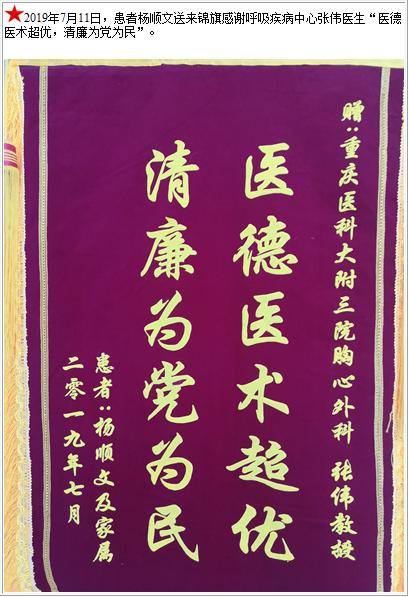 2019年7月11日，患者杨顺文送来锦旗感谢呼吸疾病中心张伟医生“医德
医术超优，清廉为党为民”。
赠:重庆医科大附三院胸心外科 张伟教授
医德医术超优
清廉为党为民
患者:杨顺文及家属
二零一九年七月